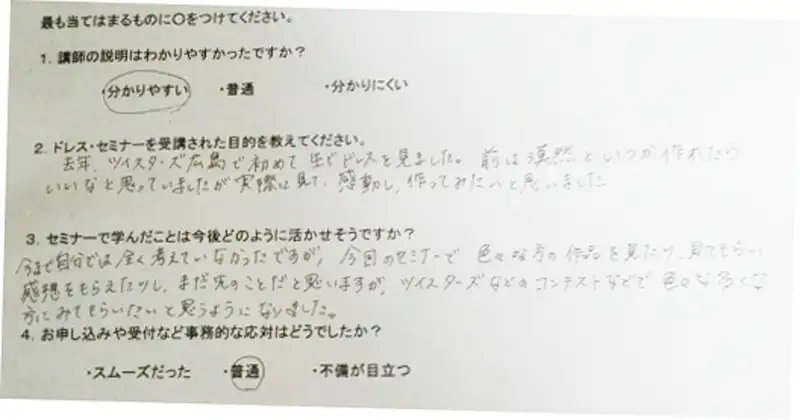 最も当てはまるものに○をつけてください。
1. 講師の説明はわかりやすかったですか？
・分かりやすい ・普通 ・分かりにくい
2. ドレス・セミナーを受講された目的を教えてください。
去年、ツイスターズ広島で初めて生でドレスを見ました。前は漠然といつか作れたら
いいなと思っていましたが実際に見て、感動し、作ってみたいと思いました
3. セミナーで学んだことは今後どのように活かせそうですか？
今まで自分では全く考えていなかったですが、今回のセミナーで色々な方の作品を見たり、見てもらい
感想をもらえたりし、まだ先のことだと思いますが、ツイスターズなどのコンテストなどで色々な
方にみてもらいたいと思うようになりました。
4. お申し込みや受付など事務的な応対はどうでしたか？
・スムーズだった ・普通 ・不備が目立つ